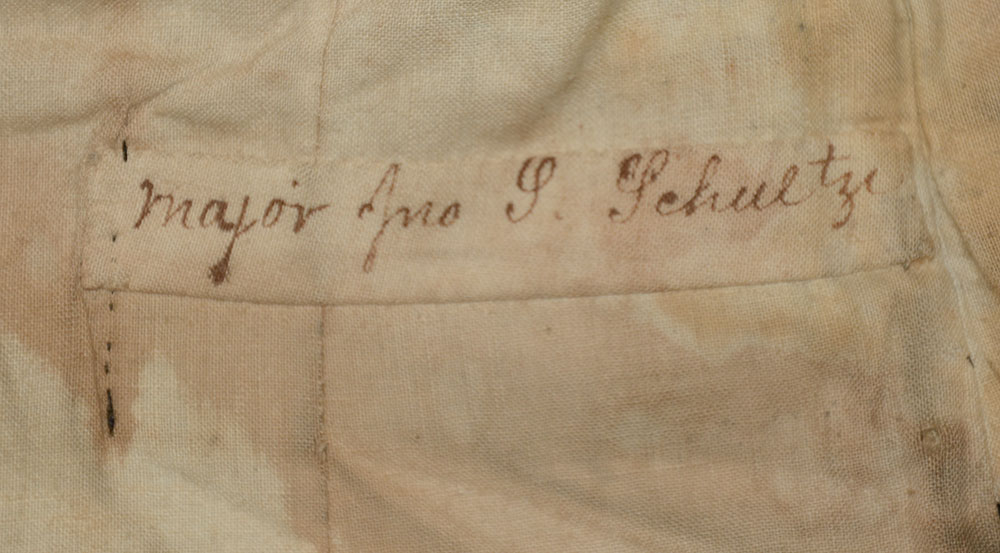 Major Jno S. Schultze